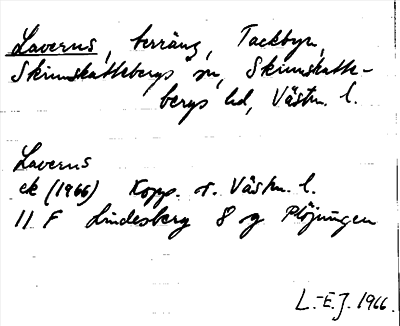 Laverns, terräng, Tackbyn,
Skinnskattebergs sn, Skinnskatte-
bergs hd, Västm. l.
Laverns
ek (1966) Kopp. o. Västm. l.
11 F Lindesberg 8 og Plöjningen
L.-E.J. 1966.